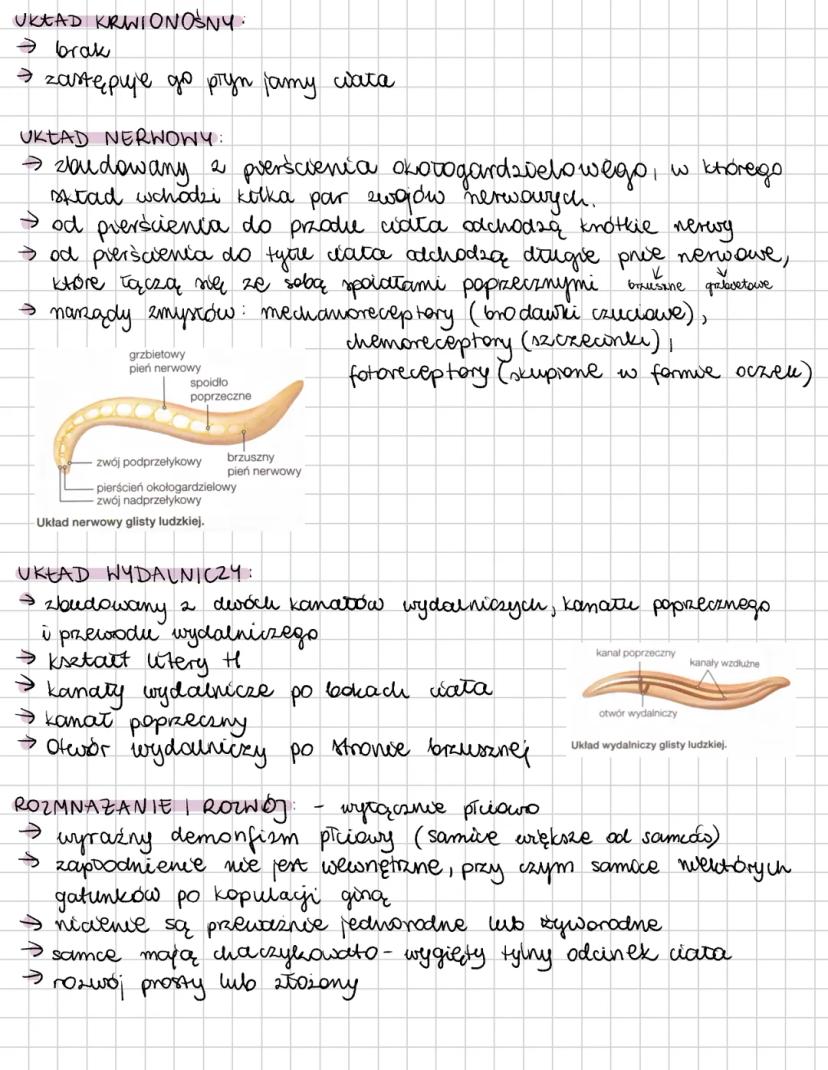 UKŁAD KRWIONOŚNY:
→ brak
→ zastępuje go płyn jamy ciała
UKŁAD NERWOWY:
→ zbudowany z pierścienia okołogardzielowego, w którego
skład wchodzi kilka par zwojów nerwowych.
→ od pierścienia do przodu ciała odchodzą krótkie nerwy
→ od pierścienia do tyłu ciała odchodzą długie pnie nerwowe,
które łączą się ze sobą spoidłami poprzecznymi
brzuszne grzbietowe
→ narządy zmysłów: mechanoreceptory (brodawki czuciowe),
chemoreceptory (szczecinki),
fotoreceptory (skupione w formie oczek)
grzbietowy
pień nerwowy
spoidło
poprzeczne
zwój podprzełykowy
brzuszny
pień nerwowy
pierścień okołogardzielowy
zwój nadprzełykowy
Układ nerwowy glisty ludzkiej.
UKŁAD WYDALNICZY:
→ zbudowany z dwóch kanałów wydalniczych, kanału poprzecznego
i przewodu wydalniczego
→ kształt litery H
→ kanały wydalnicze po bokach ciała
→ kanał poprzeczny
→ Otwór wydalniczy po stronie brzusznej
kanał poprzeczny
kanały wzdłużne
otwór wydalniczy
Układ wydalniczy glisty ludzkiej.
ROZMNAŻANIE I ROZWÓJ: - wyłącznie płciowo
→ wyraźny demonfizm płciowy (samice większe od samców)
→ zapłodnienie nie jest wewnętrzne, przy czym samice niektórych
gatunków po kopulacji giną
→ nicienie są przeważnie jednorodne lub żyworodne
→ samce mają haczykowato-wygięty tylny odcinek ciała
→ rozwój prosty lub złożony